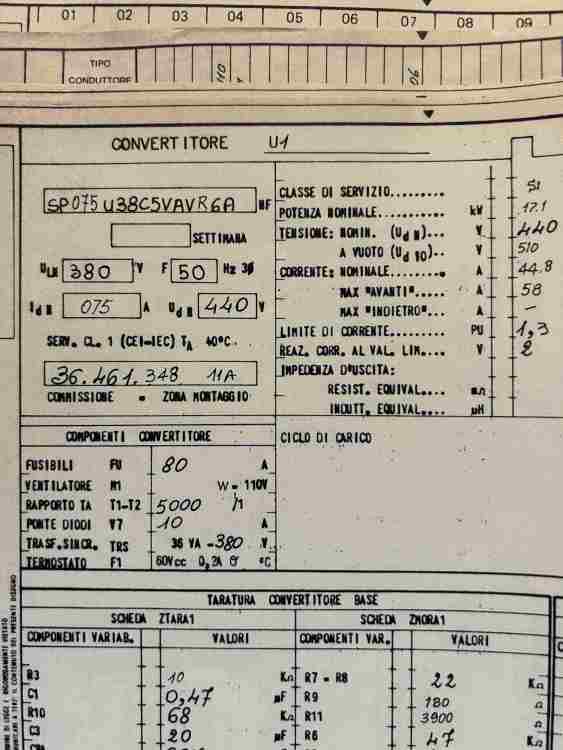 01 02 03 04 05 06 07 08 09
TIPO
CONDUTTORE
CONVERTITORE U1
SP075U38C5VAVR6A NF
SETTIMANA
ULN 380 V F 50 Hz 3Φ
IdN 075 A UdN 440 V
SERV. CL. 1 (CEI-IEC) TA 40°C.
36.461.348 11A
COMMISSIONE - ZONA MONTAGGIO
CLASSE DI SERVIZIO......... S1
POTENZA NOMINALE......... kW 17.1
TENSIONE: NOMIN. (UdN)... V 440
A VUOTO (Ud10).. V 510
CORRENTE: NOMINALE........ A 44.8
MAX "AVANTI"..... A 58
MAX "INDIETRO"... A -
LIMITE DI CORRENTE........ PU 1,3
REAZ. CORR. AL VAL. LIM.... V 2
IMPEDENZA D'USCITA:
RESIST. EQUIVAL.... mΩ
INDUTT. EQUIVAL.... µH
COMPONENTI CONVERTITORE
FUSIBILI FU 80 A
VENTILATORE M1 W = 110V
RAPPORTO TA T1-T2 5000 /1
PONTE DIODI V7 10 A
TRASF.SINCR. TRS 36 VA -380 V
TERMOSTATO F1 60Vcc 0,3A °C
CICLO DI CARICO
TARATURA CONVERTITORE BASE
SCHEDA ZTARA1 SCHEDA ZMORA1
COMPONENTI VARIAB. VALORI COMPONENTI VAR. VALORI
R3 10 KΩ R7 - R8 22 KΩ
C1 0,47 µF R9 180 Ω
R10 68 KΩ R11 3900 Ω
C3 20 µF R6 47 KΩ